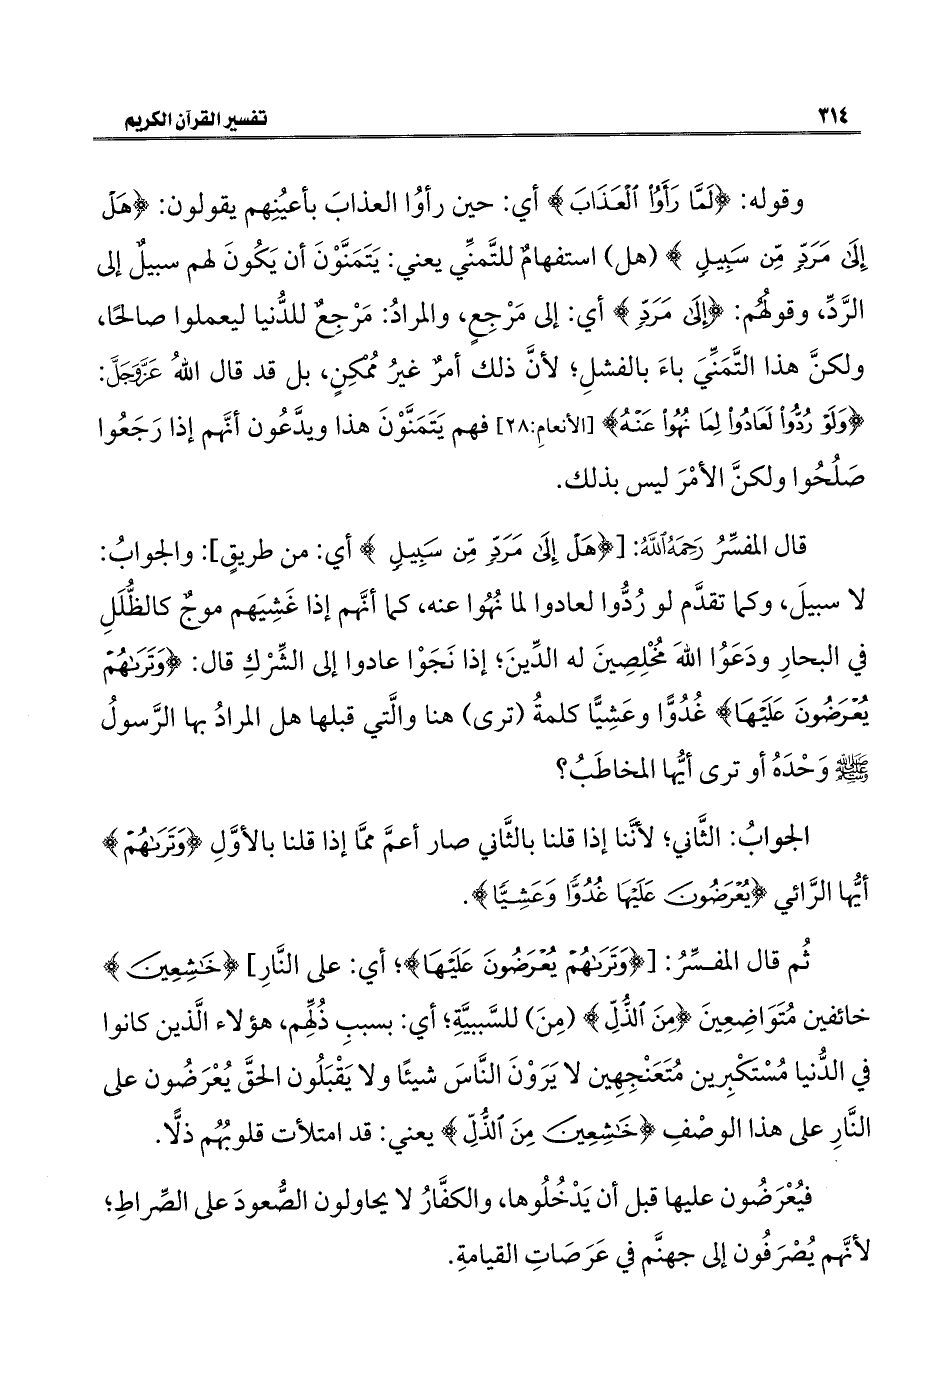 ٣١٤
تفسير القرآن الكريم
وقوله: ﴿لَمَّا رَأَوُا۟ ٱلْعَذَابَ﴾ أي: حين رأوُا العذابَ بأعيُنِهم يقولون: ﴿هَلْ
إِلَىٰ مَرَدٍّ مِّن سَبِيلٍ﴾ (هل) استفهامٌ للتَّمنِّي يعني: يَتَمَنَّوْنَ أن يَكُونَ لهم سبيلٌ إلى
الرَّدِّ، وقولُهُم: ﴿إِلَىٰ مَرَدٍّ﴾ أي: إلى مَرْجِعٍ، والمرادُ: مَرْجِعٌ للدُّنيا ليعملوا صالحًا،
ولكنَّ هذا التَّمَنِّيَ باءَ بالفشلِ؛ لأنَّ ذلك أمرٌ غيرُ مُمْكِنٍ، بل قد قال اللهُ عَزَّوَجَلَّ:
﴿وَلَوْ رُدُّوا۟ لَعَادُوا۟ لِمَا نُهُوا۟ عَنْهُ﴾ [الأنعام:٢٨] فهم يَتَمَنَّوْنَ هذا ويدَّعُون أنَّهم إذا رَجَعُوا
صَلُحُوا ولكنَّ الأمْرَ ليس بذلك.
قال المفسِّرُ رَحِمَهُ ٱللَّهُ: [﴿هَلْ إِلَىٰ مَرَدٍّ مِّن سَبِيلٍ﴾ أي: من طريقٍ]: والجوابُ:
لا سبيلَ، وكما تقدَّم لو رُدُّوا لعادوا لما نُهُوا عنه، كما أنَّهم إذا غَشِيَهم موجٌ كالظُّلَلِ
في البحارِ ودَعَوُا اللهَ مُخْلِصِينَ له الدِّينَ؛ إذا نَجَوْا عادوا إلى الشِّرْكِ قال: ﴿وَتَرَىٰهُمْ
يُعْرَضُونَ عَلَيْهَا﴾ غُدُوًّا وعَشِيًّا كلمةُ (ترى) هنا والَّتي قبلها هل المرادُ بها الرَّسولُ
ﷺ وَحْدَهُ أو ترى أيُّها المخاطَبُ؟
الجوابُ: الثَّاني؛ لأنَّنا إذا قلنا بالثَّاني صار أعمَّ ممَّا إذا قلنا بالأوَّلِ ﴿وَتَرَىٰهُمْ﴾
أيُّها الرَّائي ﴿يُعْرَضُونَ عَلَيْهَا غُدُوًّا وَعَشِيًّا﴾.
ثُم قال المفسِّرُ: [﴿وَتَرَىٰهُمْ يُعْرَضُونَ عَلَيْهَا﴾؛ أي: على النَّارِ] ﴿خَٰشِعِينَ﴾
خائفين مُتَوَاضِعِينَ ﴿مِنَ ٱلذُّلِّ﴾ (مِنَ) للسَّببيَّةِ؛ أي: بسببِ ذُلِّهِم، هؤلاء الَّذين كانوا
في الدُّنيا مُسْتَكْبِرين مُتَعَنْجِهِين لا يَرَوْنَ النَّاسَ شيئًا ولا يَقْبَلُون الحقَّ يُعْرَضُون على
النَّارِ على هذا الوصْفِ ﴿خَٰشِعِينَ مِنَ ٱلذُّلِّ﴾ يعني: قد امتلأت قلوبُهُم ذلًّا.
فيُعْرَضُون عليها قبل أن يَدْخُلُوها، والكفَّارُ لا يحاولون الصُّعودَ على الصِّراطِ؛
لأنَّهم يُصْرَفُون إلى جهنَّم في عَرَصَاتِ القيامةِ.